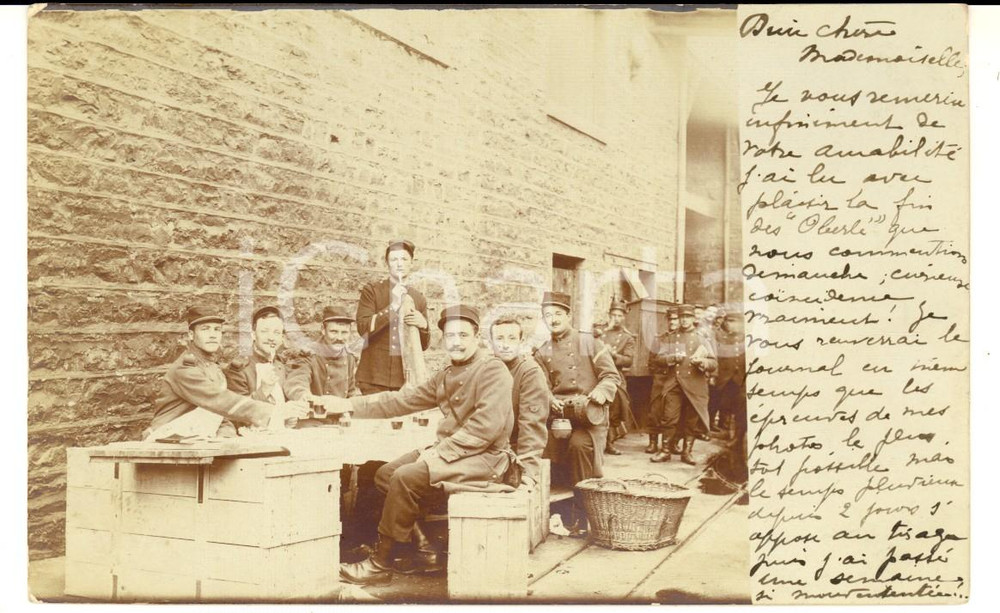 Bien chère
Mademoiselle,
Je vous remercie
infiniment de
votre amabilité
j'ai lu avec
plaisir la fin
des "Oberlé" que
nous commentions
dimanche ; curieuse
coïncidence
vraiment ! Je
vous renverrai le
journal en mêm
temps que les
épreuves de mes
photos le plus
tôt possible mais
le temps pluvieux
depuis 2 jours s'
oppose au tirage
puis j'ai passé
une semaine
si mouvementée !..
iCharta